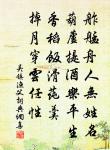 舴艋舟人無姓名
葫蘆提酒樂平生
香稻飯滑蓴羹
棹月穿雲任性
吳鎮漁父詞